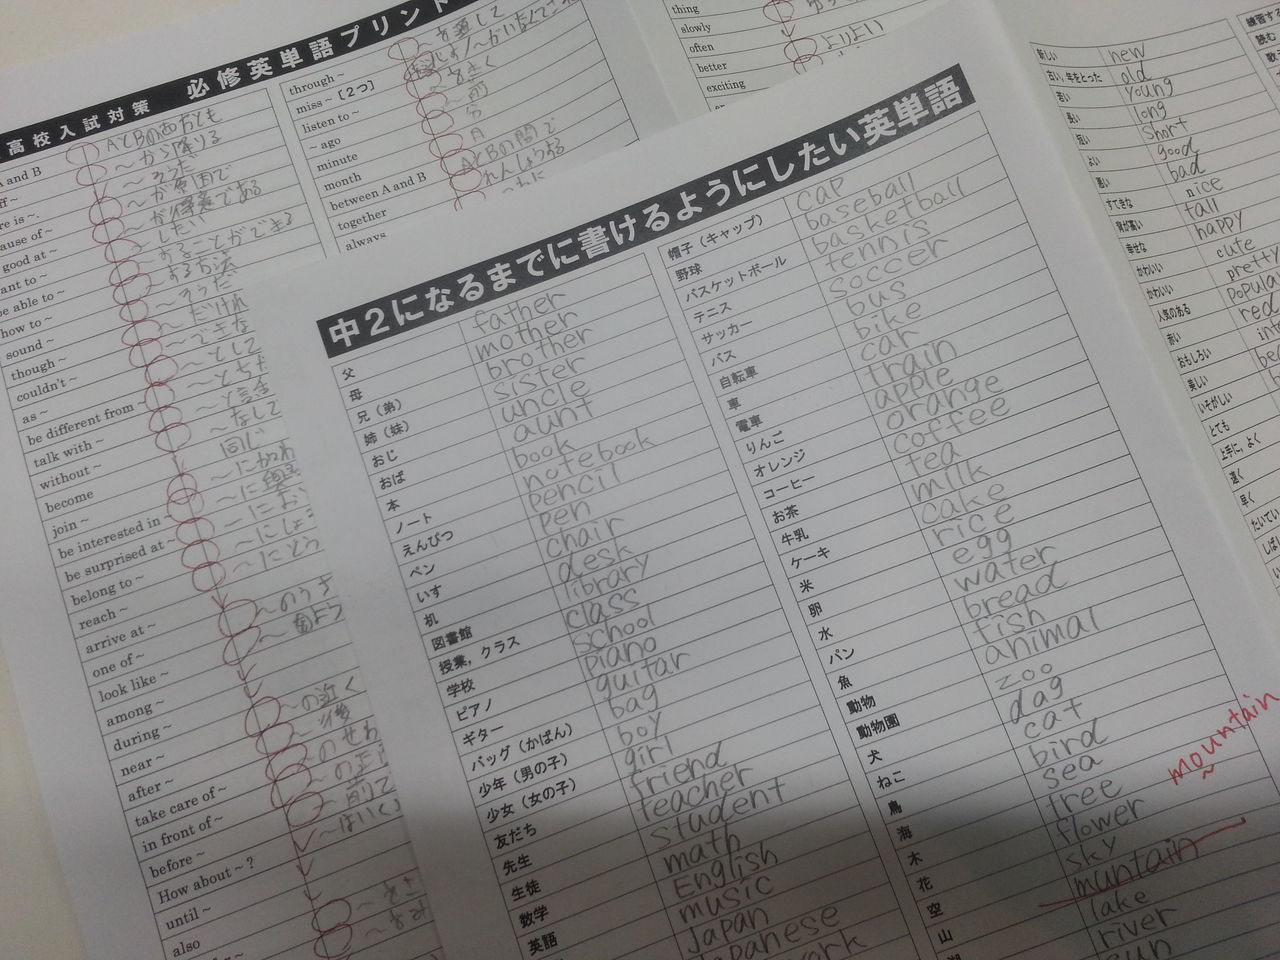 高校入試対策 必修英単語プリント
A and B AとBの両方とも
~から降りる
~そうだ
ause of~ ~が原因で
good at~ ~が得意である
ant to~ ~したい
be able to~ することができる
how to~ する方法
sound~
though~
couldn't~
as~ ~として
be different from~
talk with~
without~ ~なしで
become
join~
be interested in~
be surprised at~
belong to~
reach~
arrive at~
one of~
look like~
among~
during~
near~ ~の近く
after~
take care of~
in front of~
before~
How about~?
until~
also
through~
miss~[2つ]
listen to~ ~をきく
~ ago ~前
minute 分
month 月
between A and B AとBの間で
together
always
thing
slowly
often
better よりよい
exciting
中2になるまでに書けるようにしたい英単語
父 father
母 mother
兄(弟) brother
姉(妹) sister
おじ uncle
おば aunt
本 book
ノート notebook
えんぴつ pencil
ペン pen
いす chair
机 desk
図書館 library
授業,クラス class
学校 school
ピアノ piano
ギター guitar
バッグ(かばん) bag
少年(男の子) boy
少女(女の子) girl
友だち friend
先生 teacher
生徒 student
数学 math
英語 English
music
Japan
Japanese
帽子(キャップ) cap
野球 baseball
バスケットボール basketball
テニス tennis
サッカー soccer
バス bus
自転車 bike
車 car
電車 train
りんご apple
オレンジ orange
コーヒー coffee
お茶 tea
牛乳 milk
ケーキ cake
米 rice
卵 egg
水 water
パン bread
魚 fish
動物 animal
動物園 zoo
犬 dag
ねこ cat
鳥 bird
海 sea
木 tree
花 flower
空 sky
山 muntain
mountain
lake
river
新しい new
古い,年をとった old
若い young
長い long
短い short
よい good
悪い bad
すてきな nice
背が高い tall
幸せな happy
かわいい cute
かわいい pretty
人気のある popula
赤い red
おもしろい
美しい
いそがしい
とても
上手に,よく
速く
早く
練習す
読む